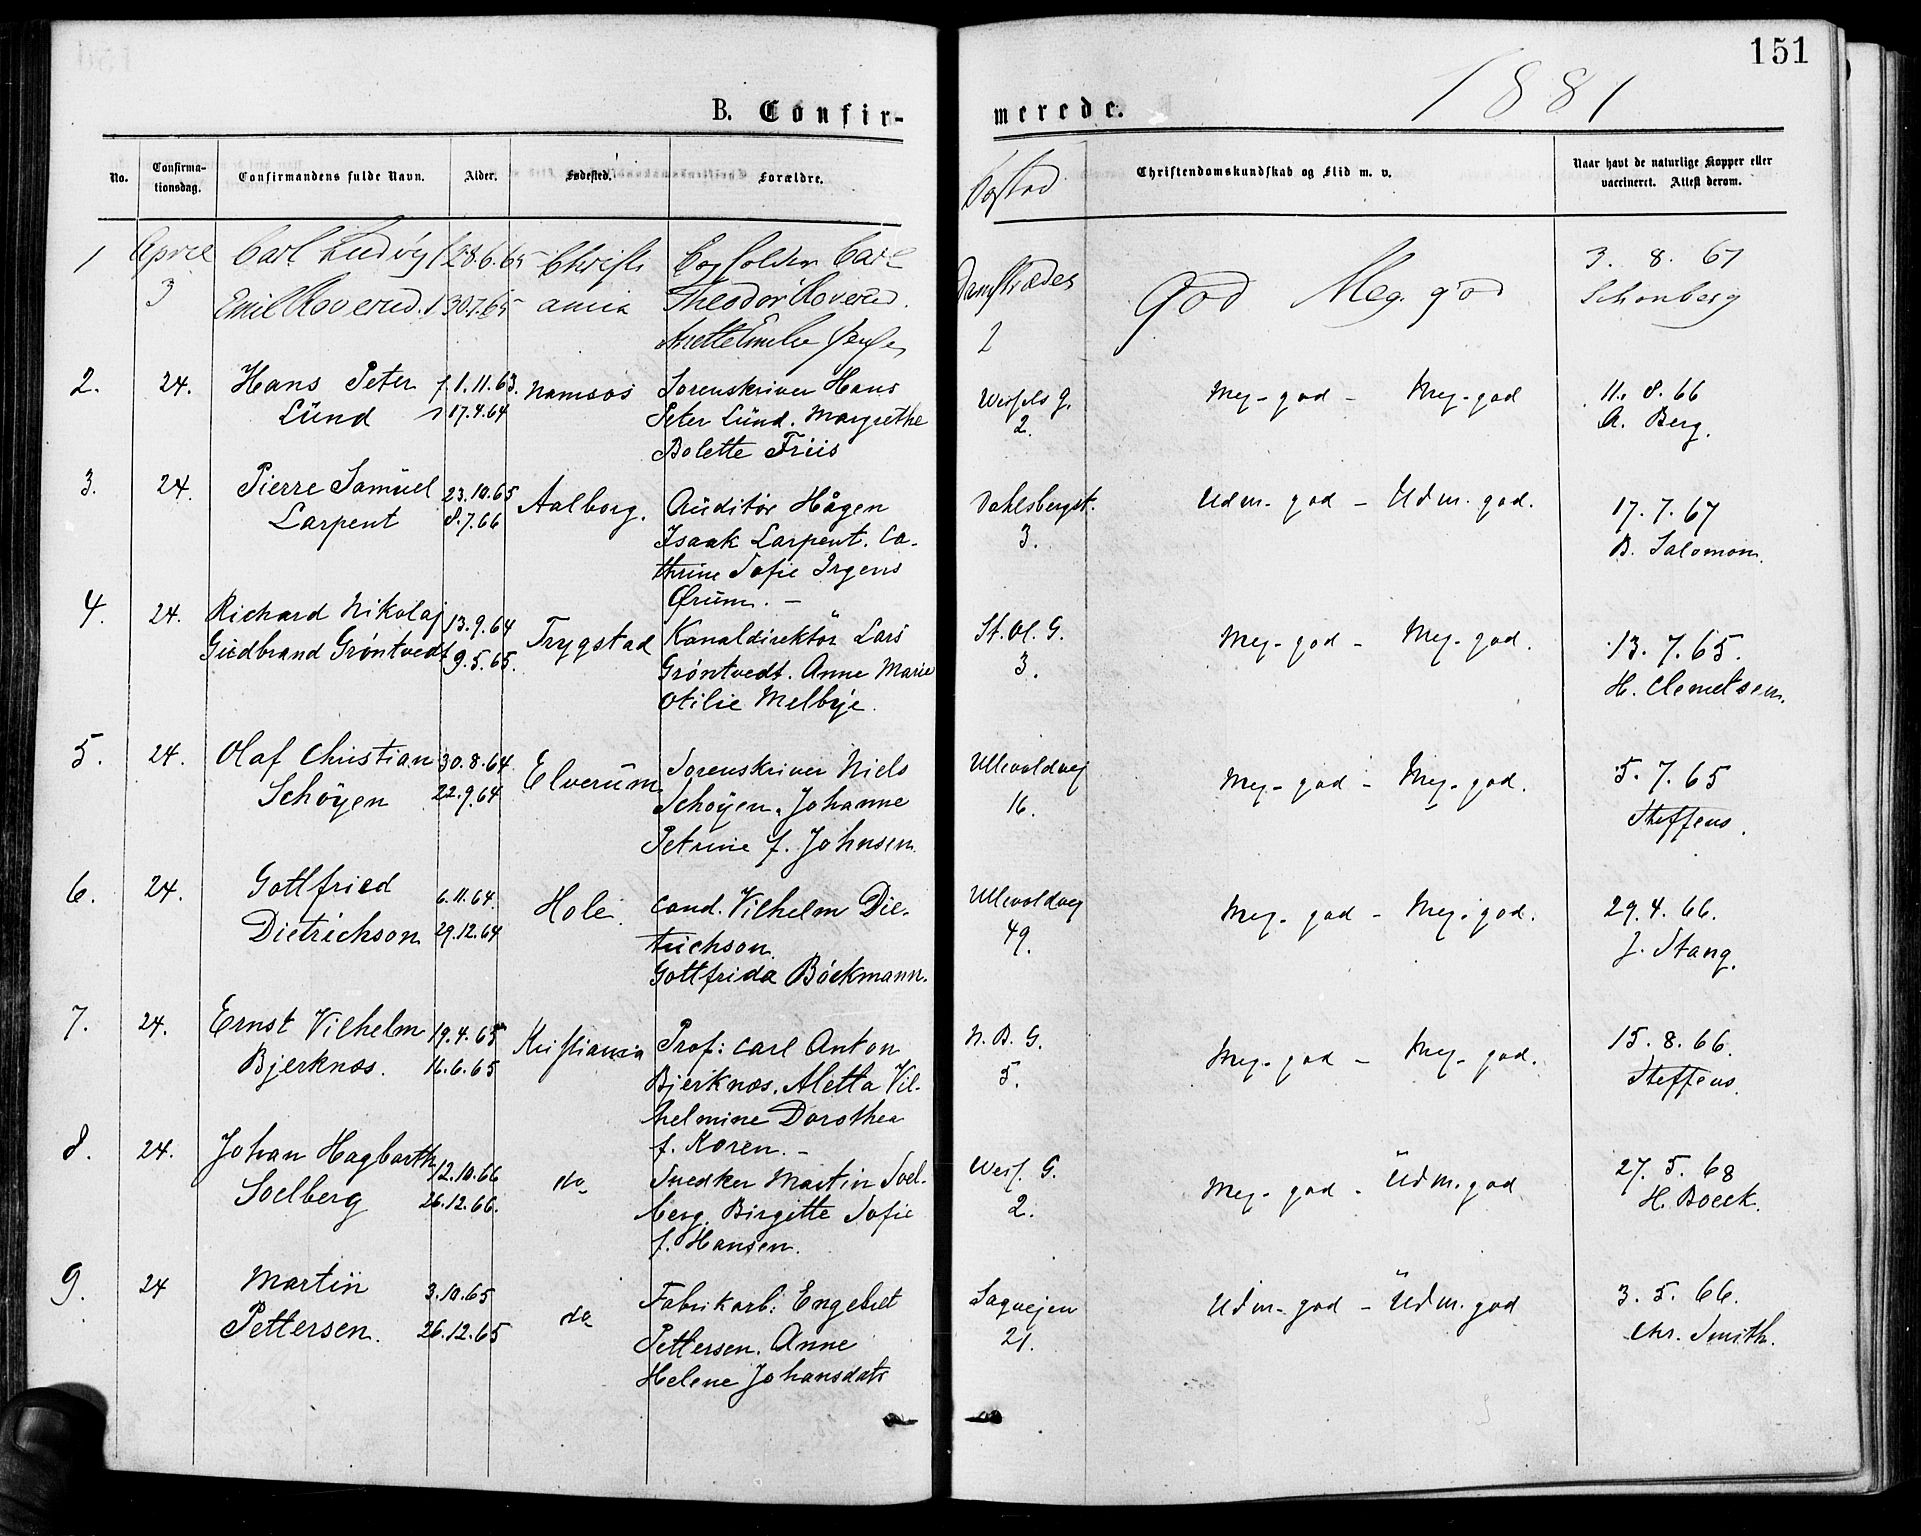 151
B. Confir-
merede.
1881
No.
Confirma-
tionsdag.
Confirmandens fulde Navn.
Alder.
Fødested.
Forældre.
Bosted
Christendomskundskab og Flid m. v.
Naar havt de naturlige Kopper eller
vaccineret. Attest derom.
1 April Carl Ludvig f 28.6.65 Christi Carl 3. 8. 67
3 Emil Hoverud. 30.7.65 ania Theodor Hoverud. Damstrædet God Meg. god Schonberg
Anette Emilie 2
2. 24. Hans Peter f 1.11.63. Namsos Sorenskriver Hans Wessels g. Meg. god - Meg. god 11. 8. 66
Lünd 17.4.64 Peter Lünd. Margrethe 2. A. Berg.
Bolette Friis
3. 24. Pierre Samüel 23.10.65 Aalborg. Aüditør Hågen Dahlsbergst. Udm. god - Udm. god. 17. 7. 67
Larpent 8.7.66 Isaak Larpent. Ca- 3. B. Salomon.
thrine Sofie Irgens
Ørum. -
4. 24. Richard Nikolaj 13.9.64 Trygstad Kanaldirektör Lars St. Ol. G. Meg. god - Meg. god. 13. 7. 65.
Güdbrand Grøntvedt 9.5.65. Grøntvedt. Anne Marie 3. H. Clemetsen.
Otilie Melbye.
5. 24. Olaf Christian 30.8.64 Elverüm Sorenskriver Niels Ullevoldvej Meg. god - Meg. god. 5. 7. 65
Schöyen 22.9.64 Schöyen. Johanne 16. Steffens.
Petrine f. Johnsen.
6. 24. Gottfried 6.11.64. Hole. cand. Vilhelm Die- Ullevoldvej Meg. god - Meg. god. 29. 4. 66.
Dietrichson 29.12.64 trichson. 49. J. Stang.
Gottfrida Böckmann.
7. 24. Ernst Vilhelm 19.4.65 Kristiania Prof: Carl Anton N. B. G. Meg. god - Meg. god. 15. 8. 66.
Bjerknæs. 16.6.65 Bjerknæs. Aletta Vil- 5. Steffens.
helmine Dorothea
f. Koren. -
8. 24. Johan Hagbarth 12.10.66 do Snedker Martin Soel- Wess. G. Meg. god - Üdm. god 27. 5. 68
Soelberg 26.12.66. berg. Birgitte Sofie 2. H. Boeck.
f. Hansen.
9. 24 Martin 3.10.65 do Fabrikarb: Engebret Sagvejen Udm. god - Üdm. god 3. 5. 66.
Pettersen. 26.12.65 Pettersen. Anne 21. Chr. Smith.
Helene Johansdatr